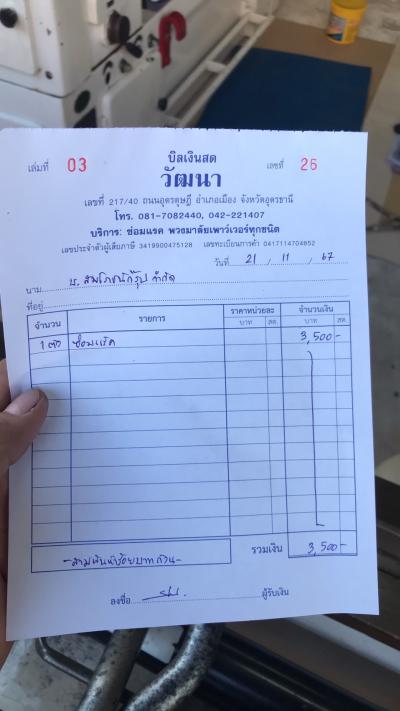 เล่มที่ 03 บิลเงินสด เลขที่ 26
วัฒนา
เลขที่ 217/40 ถนนอุดรดุษฎี อำเภอเมือง จังหวัดอุดรธานี
โทร. 081-7082440, 042-221407
บริการ: ซ่อมแรค พวงมาลัยเพาว์เวอร์ทุกชนิด
เลขประจำตัวผู้เสียภาษี 3419900475128 เลขทะเบียนการค้า 0417114704852
วันที่ 21 / 11 / 67
นาม บ. จำกัด
ที่อยู่
จำนวน รายการ ราคาหน่วยละ จำนวนเงิน
บาท สต. บาท สต.
1 ตัว ซ่อมแร็ค 3,500-
-สามพันห้าร้อยบาทถ้วน- รวมเงิน 3,500-
ลงชื่อ ผู้รับเงิน